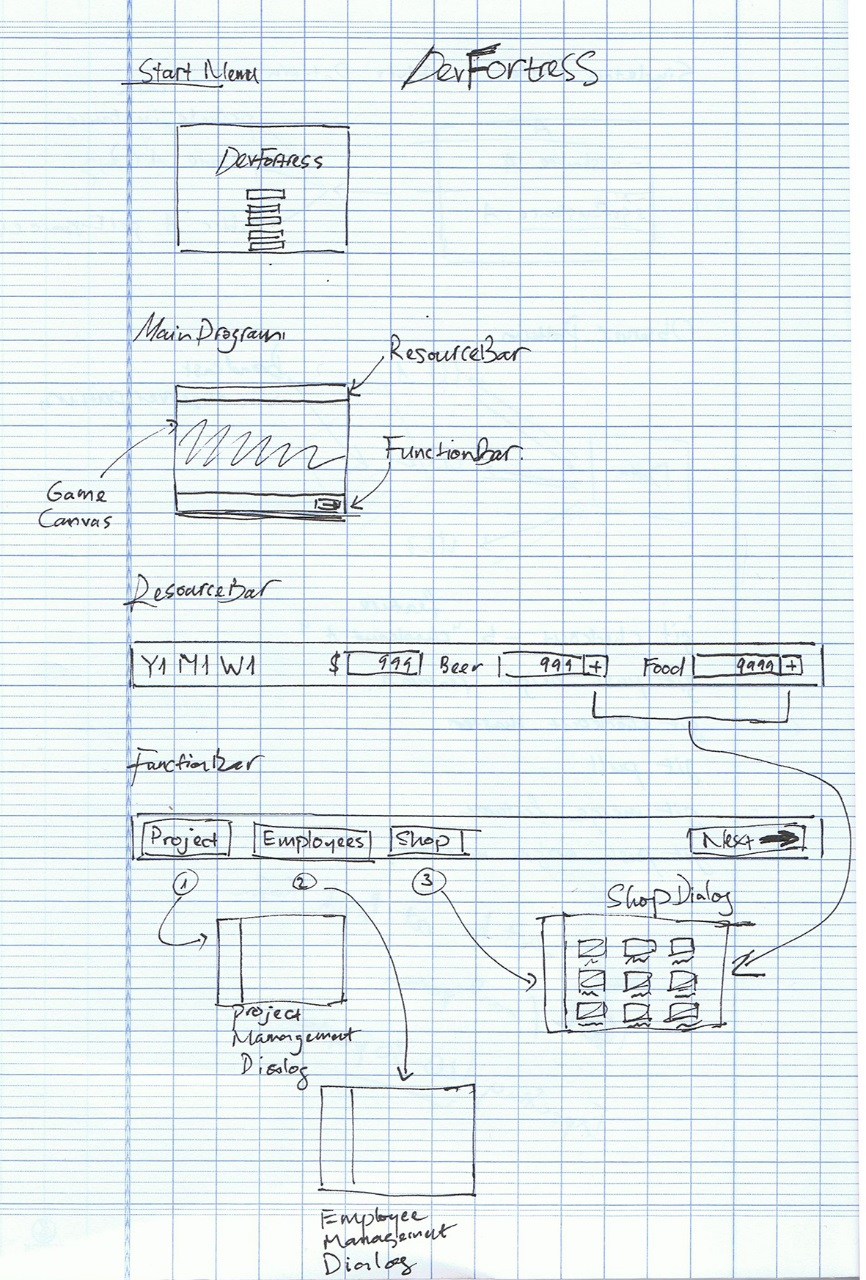 DevFortress
Start Menu
DevFortress
Main Program
ResourceBar
FunctionBar.
Game
Canvas
ResourceBar
Y1 M1 W1 $ 999 Beer 999 + Food 9999 +
FunctionBar
Project Employees Shop Next
1 2 3
Shop Dialog
Project
Management
Dialog
Employee
Management
Dialog